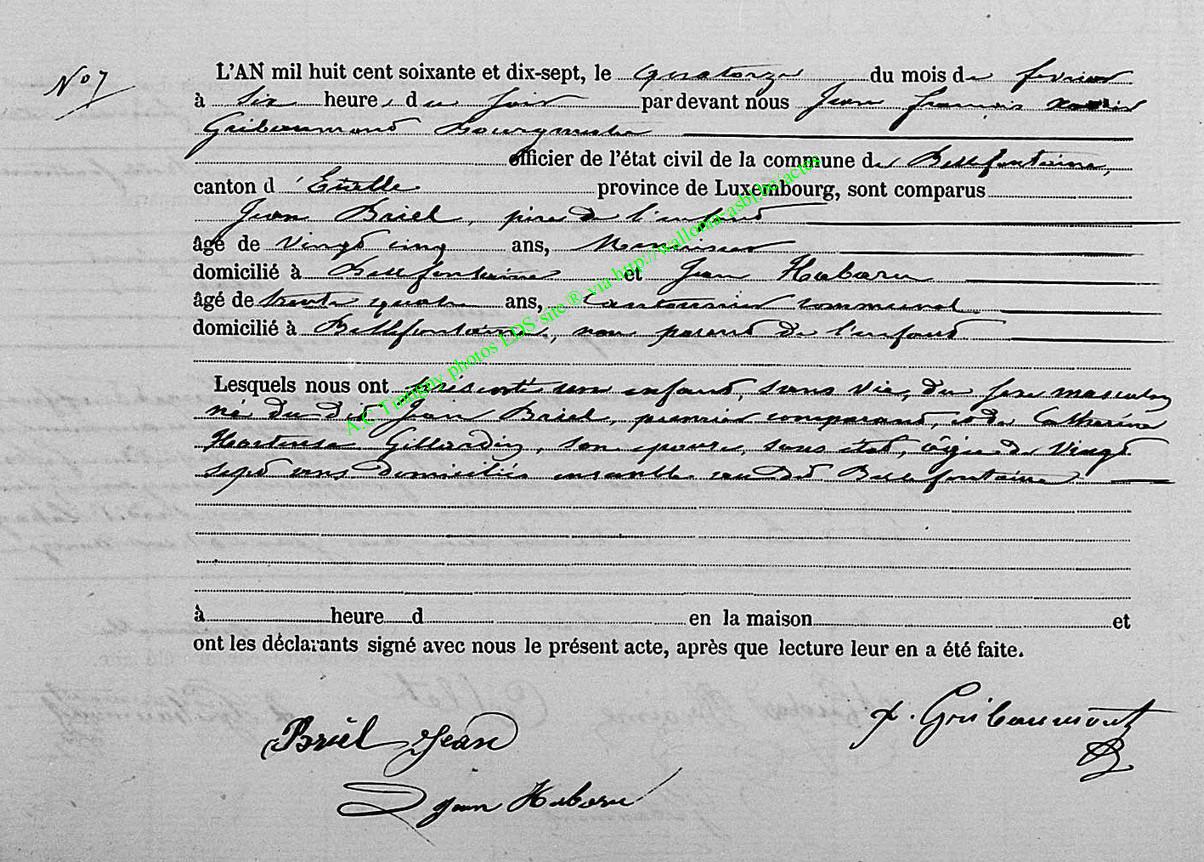 No 7
L'AN mil huit cent soixante et dix-sept, le quatorze du mois de fevrier
à six heures du soir par devant nous Jean françois xavier
Gribaumont Bourgmestre
officier de l'état civil de la commune de Bellefontaine,
canton d'Etalle province de Luxembourg, sont comparus
Jean Briel, père de l'enfant
âgé de vingt cinq ans, Menuisier
domicilié à Bellefontaine et Jean Habaru
âgé de trente quatre ans, Cantonnier communal
domicilié à Bellefontaine, non parent de l'enfant
Lesquels nous ont présenté un enfant, sans vie, du sexe masculin
né du dit Jean Briel, premier comparant, et de Catherine
Hortense Gillardin, son épouse, sans état, âgée de vingt
sept ans domiciliés ensemble au dit Bellefontaine
à heure d en la maison et
ont les déclarants signé avec nous le présent acte, après que lecture leur en a été faite.
Briel Jean
x. Gribaumont
Jean Habaru
A.C Tintigny photos LDS site ® via http://wallonia-asbl.be/actes